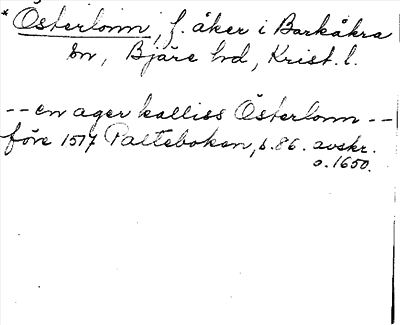 * Österlonn, f. åker i Barkåkra
sn, Bjäre hd, Krist. l.
-- en ager kalliss Österlonn --
före 1517 Paltebokan, s. 86. avskr.
o. 1650.